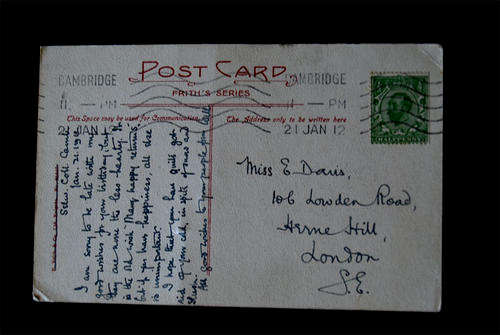 CAMBRIDGE
11 — PM
21 JAN
POST CARD
FRITH'S SERIES
CAMBRIDGE
11 — PM
21 JAN 12
This Space may be used for Communication.
The Address only to be written here
Selw. Coll. Camb.
Jan. 21. 1912
I am sorry to be late with my
good wishes for your birthday, but
they are none the less hearty. It
is the old wish Many happy returns,
but if you have happiness, all else
is unimportant.
I hope that you have quite got
rid of your cold, in spite of and
All good wishes to your people from
Miss E Davis,
106 Lowden Road,
Herne Hill,
London
S.E.